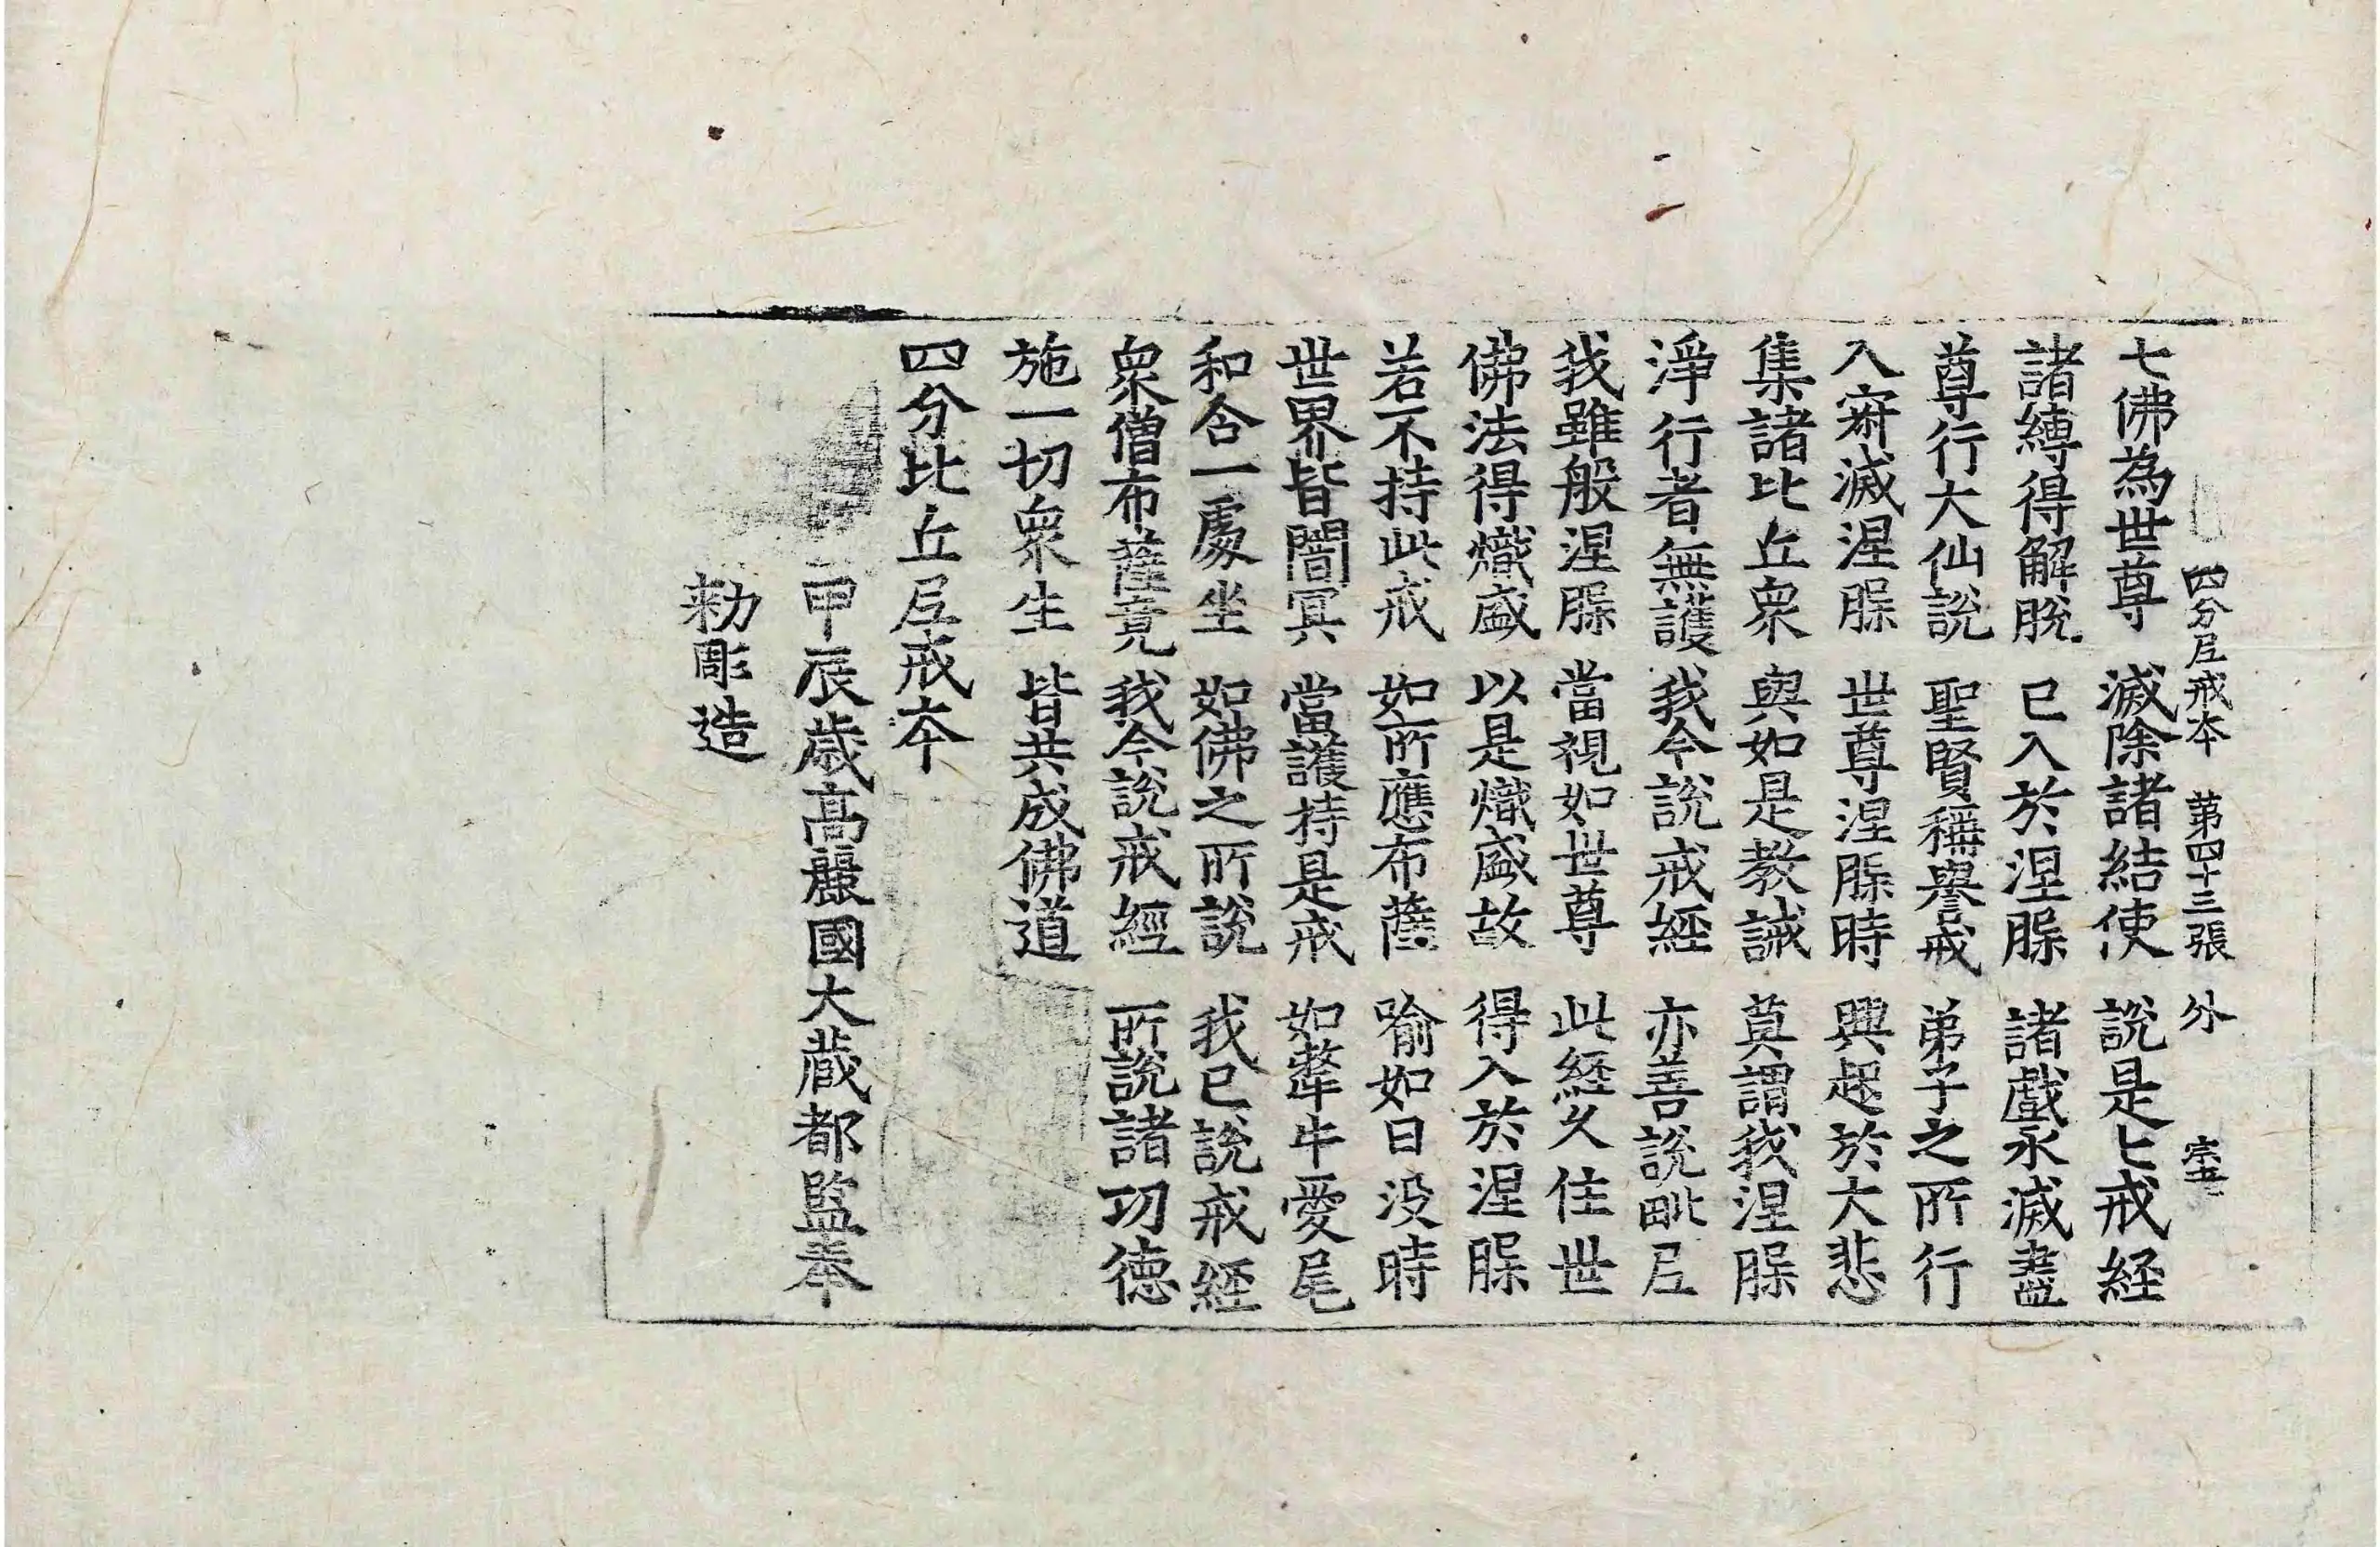 四分尼戒本 第四十三張 外
七佛為世尊 滅除諸結使 說是七戒経
諸縛得解脫 已入於涅槃 諸戲永滅盡
尊行大仙說 聖賢稱譽戒 弟子之所行
入寂滅涅槃 世尊涅槃時 興起於大悲
集諸比丘衆 與如是教誡 莫謂我涅槃
淨行者無護 我今說戒経 亦善說毗尼
我雖般涅槃 當視如世尊 此経久住世
佛法得熾盛 以是熾盛故 得入於涅槃
若不持此戒 如所應布薩 喻如日没時
世界皆闇冥 當護持是戒 如犛牛愛尾
和合一處坐 如佛之所說 我已說戒経
衆僧布薩竟 我今說戒經 所說諸功德
施一切衆生 皆共成佛道
四分比丘尼戒本
甲辰歲高麗國大藏都監奉
勑彫造